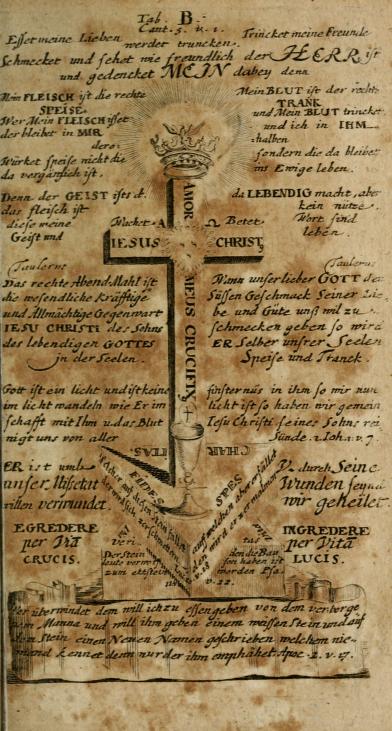 Tab. B.
Cant. 5. v. 1.
Esset meine Lieben Trincket meine Freunde
werdet truncken.
Schmecket und sehet wie freundlich der HERR ist
und gedencket MEIN dabey denn
Mein FLEISCH ist die rechte Mein BLUT ist der rechte
SPEISE. TRANK
Wer Mein FLEISCH isset und Mein BLUT trincket
der bleibet in MIR und ich in IHM
dero halben
Würket speise nicht die sondern die da bleibet
da vergänglich ist. ins Ewige leben.
Denn der GEIST ists d. da LEBENDIG macht, aber
das fleisch ist kein nütze.
diese meine Wort sind
Geist und leben.
Wachet A Ω Betet
AMOR
IESUS CHRIST,
MEUS CRUCIFIX
Taulerus Taulerus
Das rechte Abend Mahl ist Wann unser lieber GOTT den
die wesendliche Kräfftige Süssen Geschmack Seiner Lie
und Allmächtige Gegenwart be und Güte unß wil zu
IESU CHRISTI des Sohns schmecken geben so wird
des lebendigen GOTTES ER Selber unsrer Seelen
in der Seelen. Speise und Tranck.
Gott ist ein licht und ist keine finsternüs in ihm so wir nun
im licht wandeln wie Er im licht ist so haben wir gemein
schafft mit Ihm u. das Blut Iesu Christi seines Sohns rei
nigt uns von aller Sünde. 1. Ioh. 1. v. 7.
ITAS. CHAR
ER ist umb V. durch Seine
unser Missetat Wunden seynd
willen verwundet. wir geheilet.
FIDES SPES
Welcher auf diesen Stein fallen
der wird sich zerschmettern
auf welchen aber er fället
den wird er zermalmen
EGREDERE INGREDERE
per Viā per Vitā
CRUCIS. LUCIS.
Der Stein den die Bau
leute verworf fen haben ist
zum eckstein worden
Wer überwindet dem will ich zu essen geben von dem verborge
nem Manna und will ihm geben einem weissen Stein und auf
dem Stein einen Neuen Namen geschrieben welchem nie-
mand kennet denn nur der ihm emphähet. Apoc. 2. v. 17.